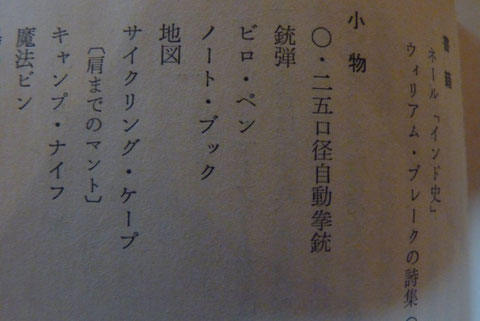 書籍
ネール「インド史」
ウィリアム・ブレークの詩集（
小物
〇・二五口径自動拳銃
銃弾
ビロ・ペン
ノート・ブック
地図
サイクリング・ケープ
〔肩までのマント〕
キャンプ・ナイフ
魔法ビン